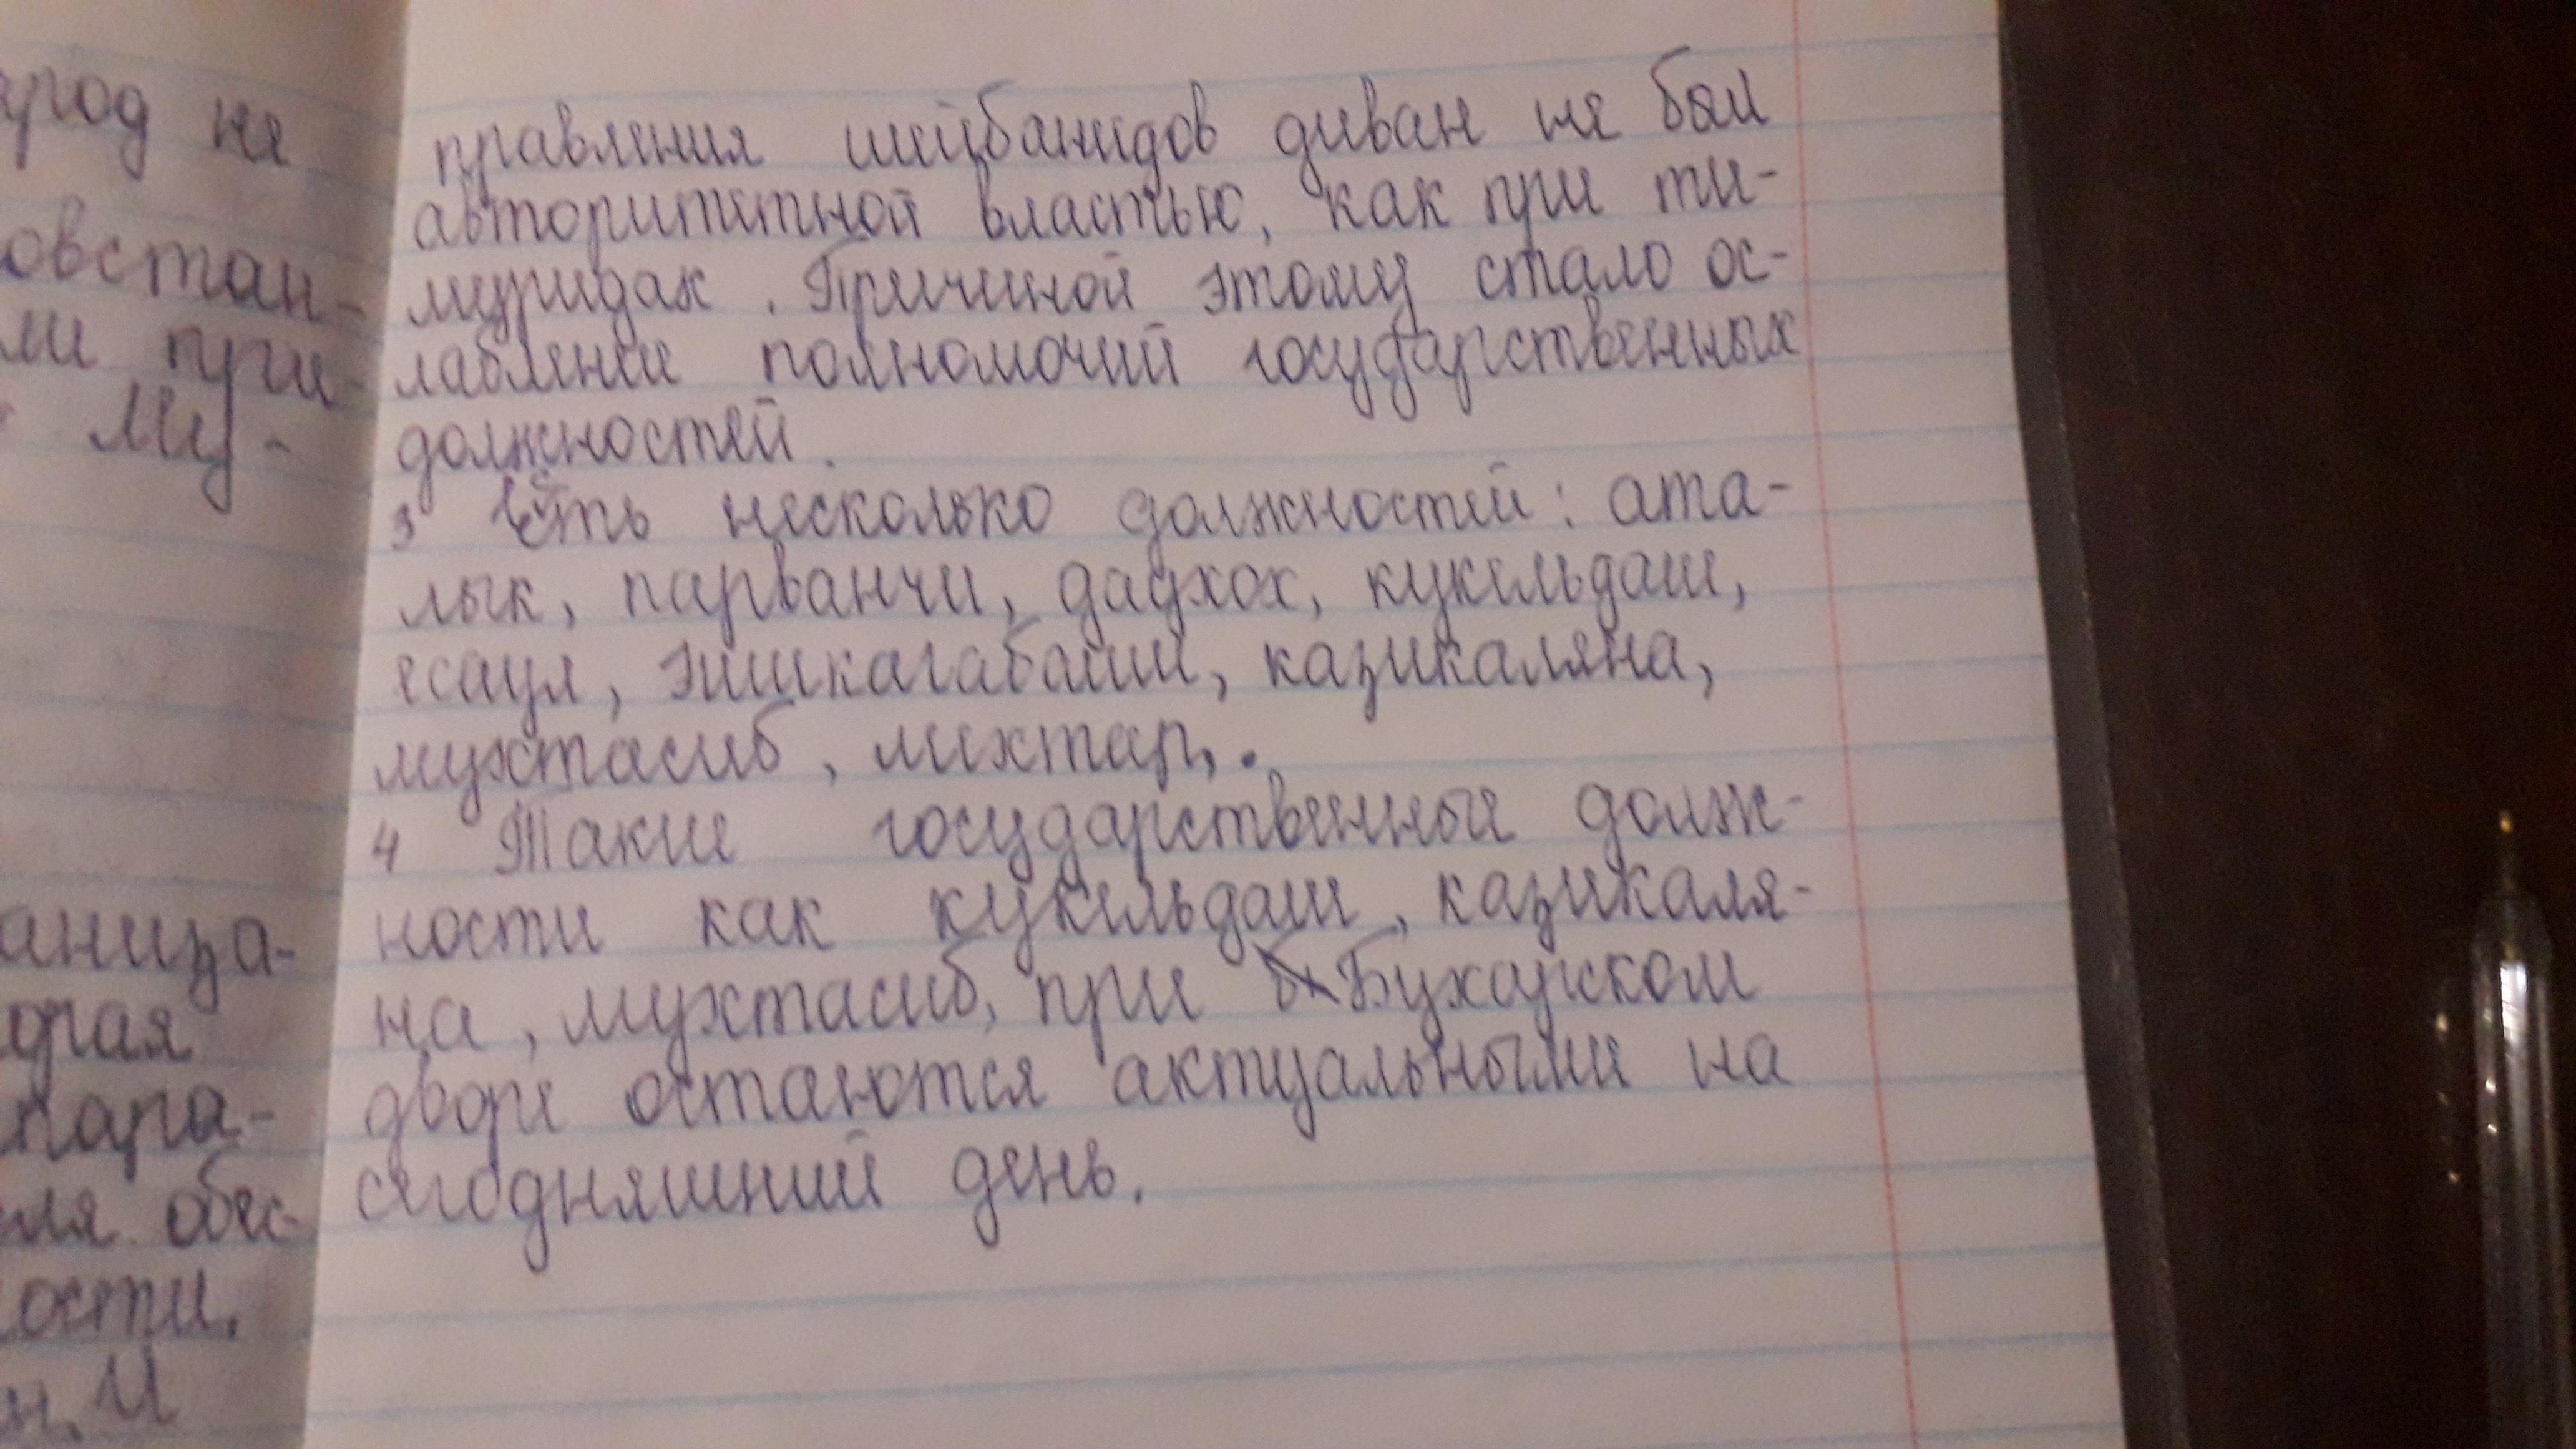 род не
овстан-
ми при-
Му-
аниза-
орая
пара-
еля обес-
ости.
н. И
правления шейбанидов диван не был
авторитетной властью, как при ти-
муридах. Причиной этому стало ос-
лабление полномочий государственных
должностей.
3 Есть несколько должностей: ата-
лык, парванчи, дадхох, кукельдаш,
есаул, эшикагабаши, казикаляна,
мухтасиб, михтар,.
4 Такие государственные долж-
ности как кукельдаш, казикаля-
на, мухтасиб, при Бухарском
дворе остаются актуальными на
сегодняшний день.